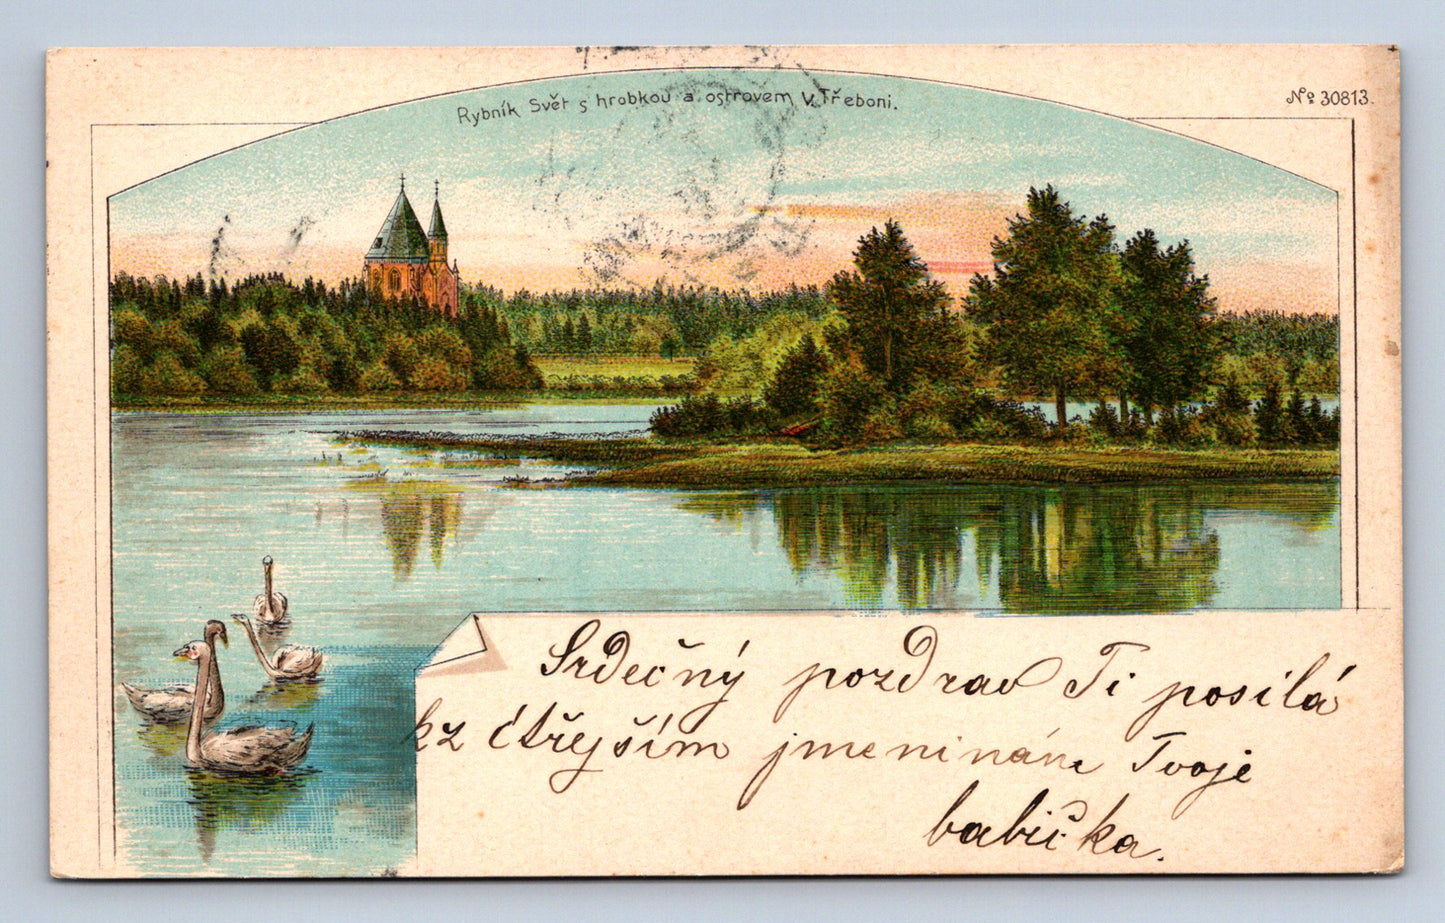 Rybník Svět s hrobkou a ostrovem v Třeboni.
Nº 30813.
Srdečný pozdrav Ti posilá
kz ítřejším jmeninám Tvoje
babička.